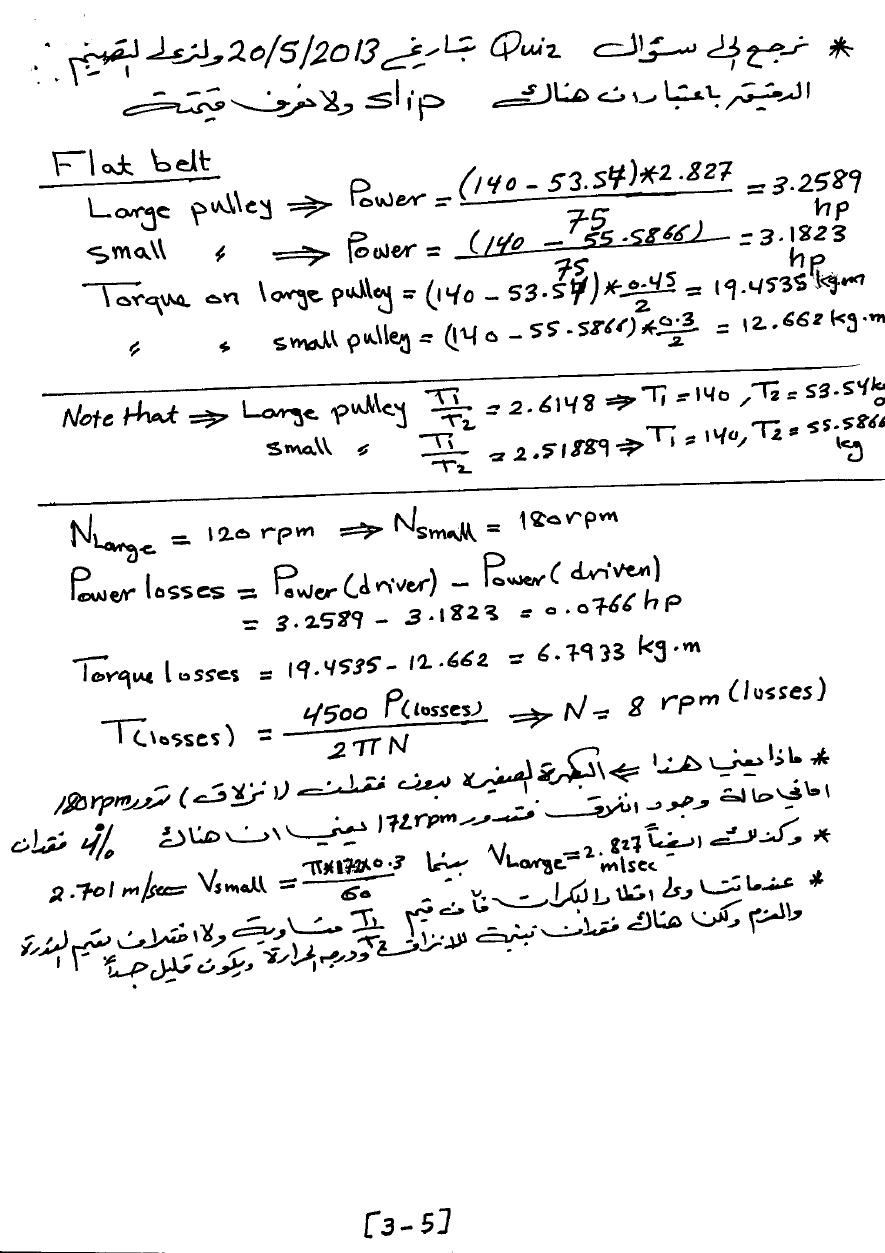 * نرجع إلى سؤال Quiz بتاريخ 20/5/2013 ولنرى القيم
الدقيقة باعتبار ان هناك slip ولا نعرف قيمته
Flat belt
Large pulley ⇒ Power = (140 - 53.54)*2.827 / 75 = 3.2589 hp
small 〃 ⇒ Power = (140 - 55.5866) / 75 = 3.1823 hp
Torque on large pulley = (140 - 53.54)*0.45/2 = 19.4535 kg.m
〃 〃 small pulley = (140 - 55.5866)*0.3/2 = 12.662 kg.m
Note that ⇒ Large pulley T1/T2 = 2.6148 ⇒ T1 = 140, T2 = 53.54 k
small 〃 T1/T2 = 2.51889 ⇒ T1 = 140, T2 = 55.5866 kg
N Large = 120 rpm ⇒ N small = 180 rpm
Power losses = Power (driver) - Power (driven)
= 3.2589 - 3.1823 = 0.0766 hp
Torque losses = 19.4535 - 12.662 = 6.7933 kg.m
T(losses) = 4500 P(losses) / 2πN ⇒ N = 8 rpm (losses)
* ماذا يعني هذا ⇐ البكرة الصغيرة بدون فقدان (انزلاق) تدور 180rpm
اما في حالة وجود انزلاق فتدور 172rpm يعني ان هناك 4% فقدان
* وكذلك ايضاً V Large = 2.827 m/sec بينما V small = π*172*0.3 / 60 = 2.701 m/sec
* عندما تتساوى اقطار البكرات فأن قيم T1/T2 متساوية ولا اختلاف بقيم القدرة
والعزم ولكن هناك فقدان نتيجة للانزلاق ودرجة الحرارة ويكون قليل جداً
[3-5]